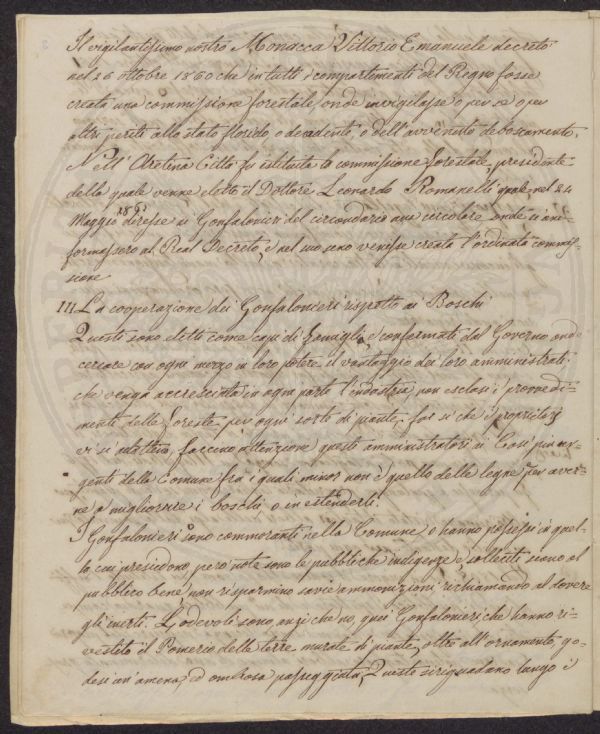 Il vigilantissimo nostro Monarca Vittorio Emanuele decretò
nel 26 ottobre 1860 che in tutti i compartimenti del Regno fosse
creata una commissione forestale, onde invigilasse o per se o per
altri periti allo stato florido o decadente, o dell'avvenuto deboscamento.
Nell'Aretina Città fu istituita la commissione forestale, presidente
della quale venne eletto il Dottore Leonardo Romanelli quale, nel 24
Maggio 1861 diresse ai Gonfalonieri del circondario una circolare onde si uni-
formassero al Real Decreto, e nel suo seno venisse creata l'ordinata commis-
sione
III. La cooperazione dei Gonfalonieri rispetto ai Boschi
Questi sono eletti come capi di famiglia, e confermati dal Governo onde
cercare con ogni mezzo in loro potere il vantaggio dei loro amministrati:
che venga accresciuta in ogni parte l'industria, non esclusi i provvedi-
menti delle foreste per ogni sorte di piante, far sì che i proprietarj
vi si attettino, facciano attenzione questi amministratori ai casi più ur-
genti della Comune fra i quali minor non è quello delle legne, per aver-
ne a migliorare i boschi, o in estenderli.
I Gonfalonieri sono commoranti nella Comune, o hanno possessi in quel-
la cui presidono, però note sono le pubbliche indigenze e solleciti siano al
pubblico bene, non risparmino savie ammonizioni richiamando al dovere
gl'inerti. Lodevoli sono, anzi che no, quei Gonfalonieri che hanno ri-
vestito il Pomerio delle terre murate di piante, oltre all'ornamento, go-
desi un'amena, ed ombrosa passeggiata, Queste si riguardano lungo i